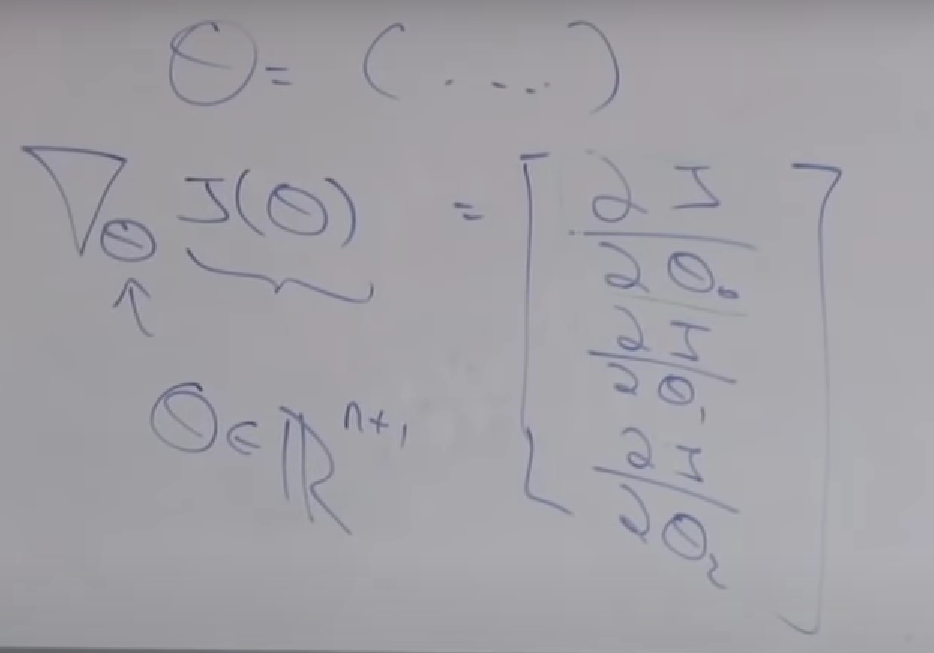 θ = (.....)
∇θ J(θ) = [ ∂J/∂θ₀
∂J/∂θ₁
∂J/∂θ₂ ]
θ ∈ ℝⁿ⁺¹